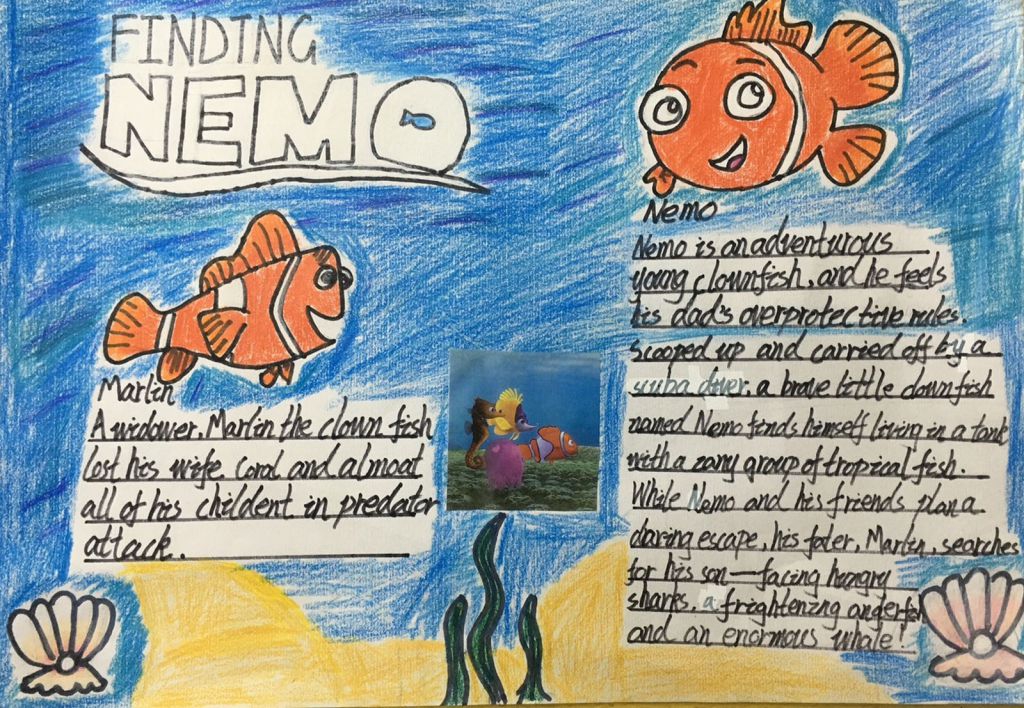 FINDING
NEMO
Nemo
Nemo is an adventurous
young clownfish, and he feels
his dad's overprotective rules.
Scooped up and carried off by a
scuba diver, a brave little clownfish
named Nemo finds himself living in a tank
with a zany group of tropical fish.
While Nemo and his friends plan a
daring escape, his fater, Martin, searches
for his son—facing hangry
sharks, a frightening angerfeh
and an enormous whale!
Marlin
A widower, Marlin the clown fish
lost his wife Coral and almoat
all of his childent in predator
attack.